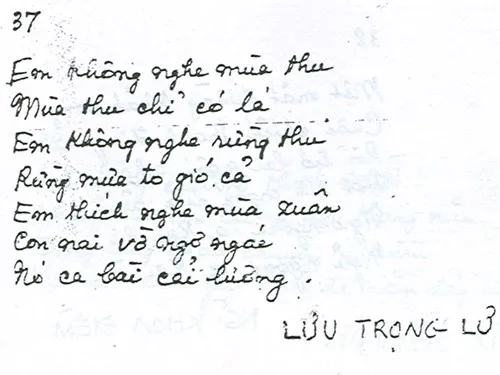 37
Em không nghe mùa thu
Mùa thu chỉ có lá
Em không nghe rừng thu
Rừng mưa to gió cả
Em thích nghe mùa xuân
Con nai vờ ngơ ngác
Nó ca bài cải lương.
LƯU TRỌNG LƯ